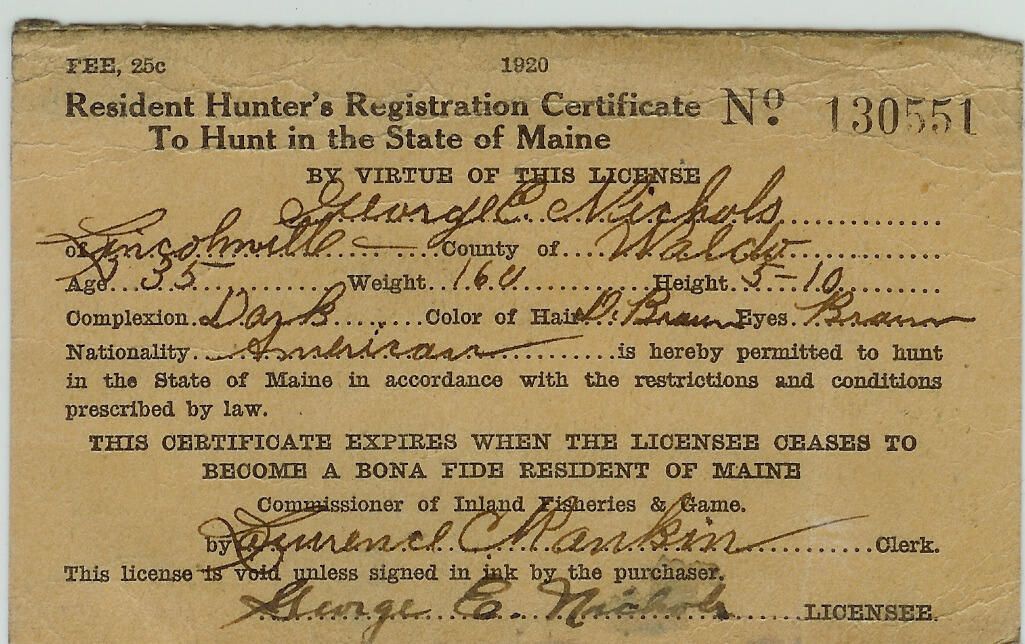 FEE, 25c 1920
Resident Hunter's Registration Certificate No. 130551
To Hunt in the State of Maine
BY VIRTUE OF THIS LICENSE
George E. Nichols
of Lincolnville County of Waldo
Age 35 Weight 160 Height 5-10
Complexion Dark Color of Hair D. Brown Eyes Brown
Nationality American is hereby permitted to hunt
in the State of Maine in accordance with the restrictions and conditions
prescribed by law.
THIS CERTIFICATE EXPIRES WHEN THE LICENSEE CEASES TO
BECOME A BONA FIDE RESIDENT OF MAINE
Commissioner of Inland Fisheries & Game.
by Laurence C Rankin Clerk.
This license is void unless signed in ink by the purchaser.
George E. Nichols LICENSEE.